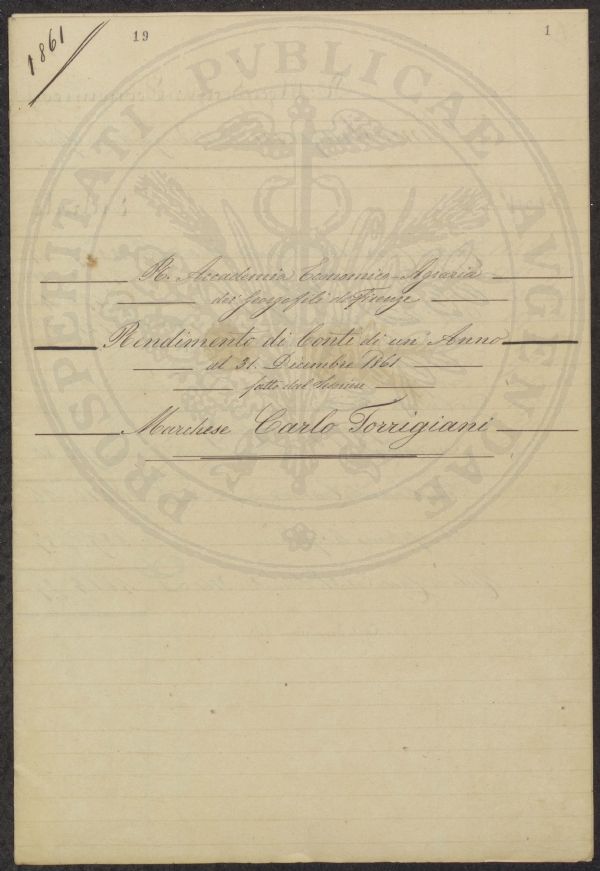 1861
19
1
PROSPERITATI PVBLICAE AVGENDAE
R. Accademia Economico-Agraria
dei Georgofili di Firenze
Rendimento di Conti di un' Anno
al 31. Dicembre 1861
fatto dal
Marchese Carlo Torrigiani